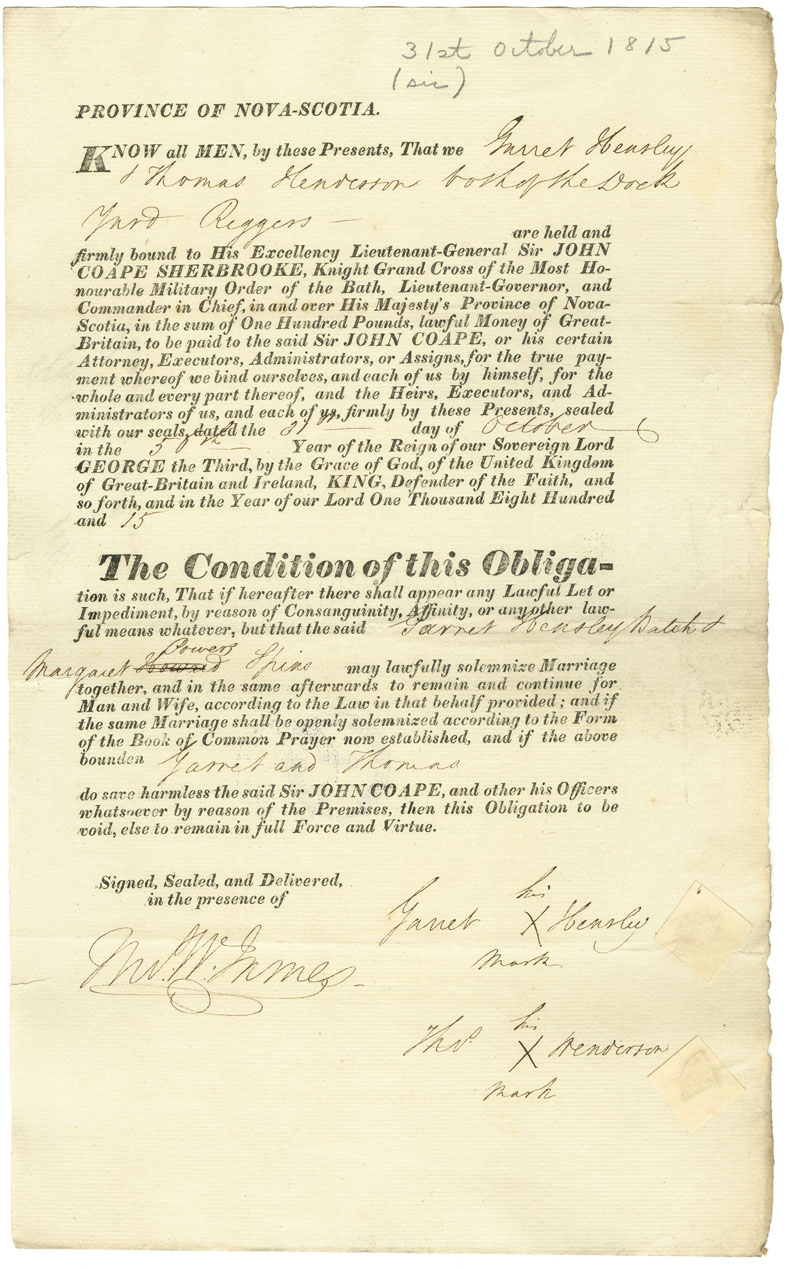 31st October 1815
(sic)
PROVINCE OF NOVA-SCOTIA.
KNOW all MEN, by these Presents, That we Garret Hensley
& Thomas Henderson both of the Dock
Yard Riggers —
are held and
firmly bound to His Excellency Lieutenant-General Sir JOHN
COAPE SHERBROOKE, Knight Grand Cross of the Most Ho-
nourable Military Order of the Bath, Lieutenant-Governor, and
Commander in Chief, in and over His Majesty's Province of Nova-
Scotia, in the sum of One Hundred Pounds, lawful Money of Great-
Britain, to be paid to the said Sir JOHN COAPE, or his certain
Attorney, Executors, Administrators, or Assigns, for the true pay-
ment whereof we bind ourselves, and each of us by himself, for the
whole and every part thereof, and the Heirs, Executors, and Ad-
ministrators of us, and each of us, firmly by these Presents, sealed
with our seals, dated the 31st day of October
in the Year of the Reign of our Sovereign Lord
GEORGE the Third, by the Grace of God, of the United Kingdom
of Great-Britain and Ireland, KING, Defender of the Faith, and
so forth, and in the Year of our Lord One Thousand Eight Hundred
and 15
The Condition of this Obliga-
tion is such, That if hereafter there shall appear any Lawful Let or
Impediment, by reason of Consanguinity, Affinity, or any other law-
ful means whatever, but that the said Garret Hensley Batch &
Powers
Margaret Howard Spins may lawfully solemnize Marriage
together, and in the same afterwards to remain and continue for
Man and Wife, according to the Law in that behalf provided; and if
the same Marriage shall be openly solemnized according to the Form
of the Book of Common Prayer now established, and if the above
bounden Garret and Thomas
do save harmless the said Sir JOHN COAPE, and other his Officers
whatsoever by reason of the Premises, then this Obligation to be
void, else to remain in full Force and Virtue.
Signed, Sealed, and Delivered,
in the presence of
his
Garret X Hensley
mark
Thos. W. James
his
Thos. X Henderson
mark